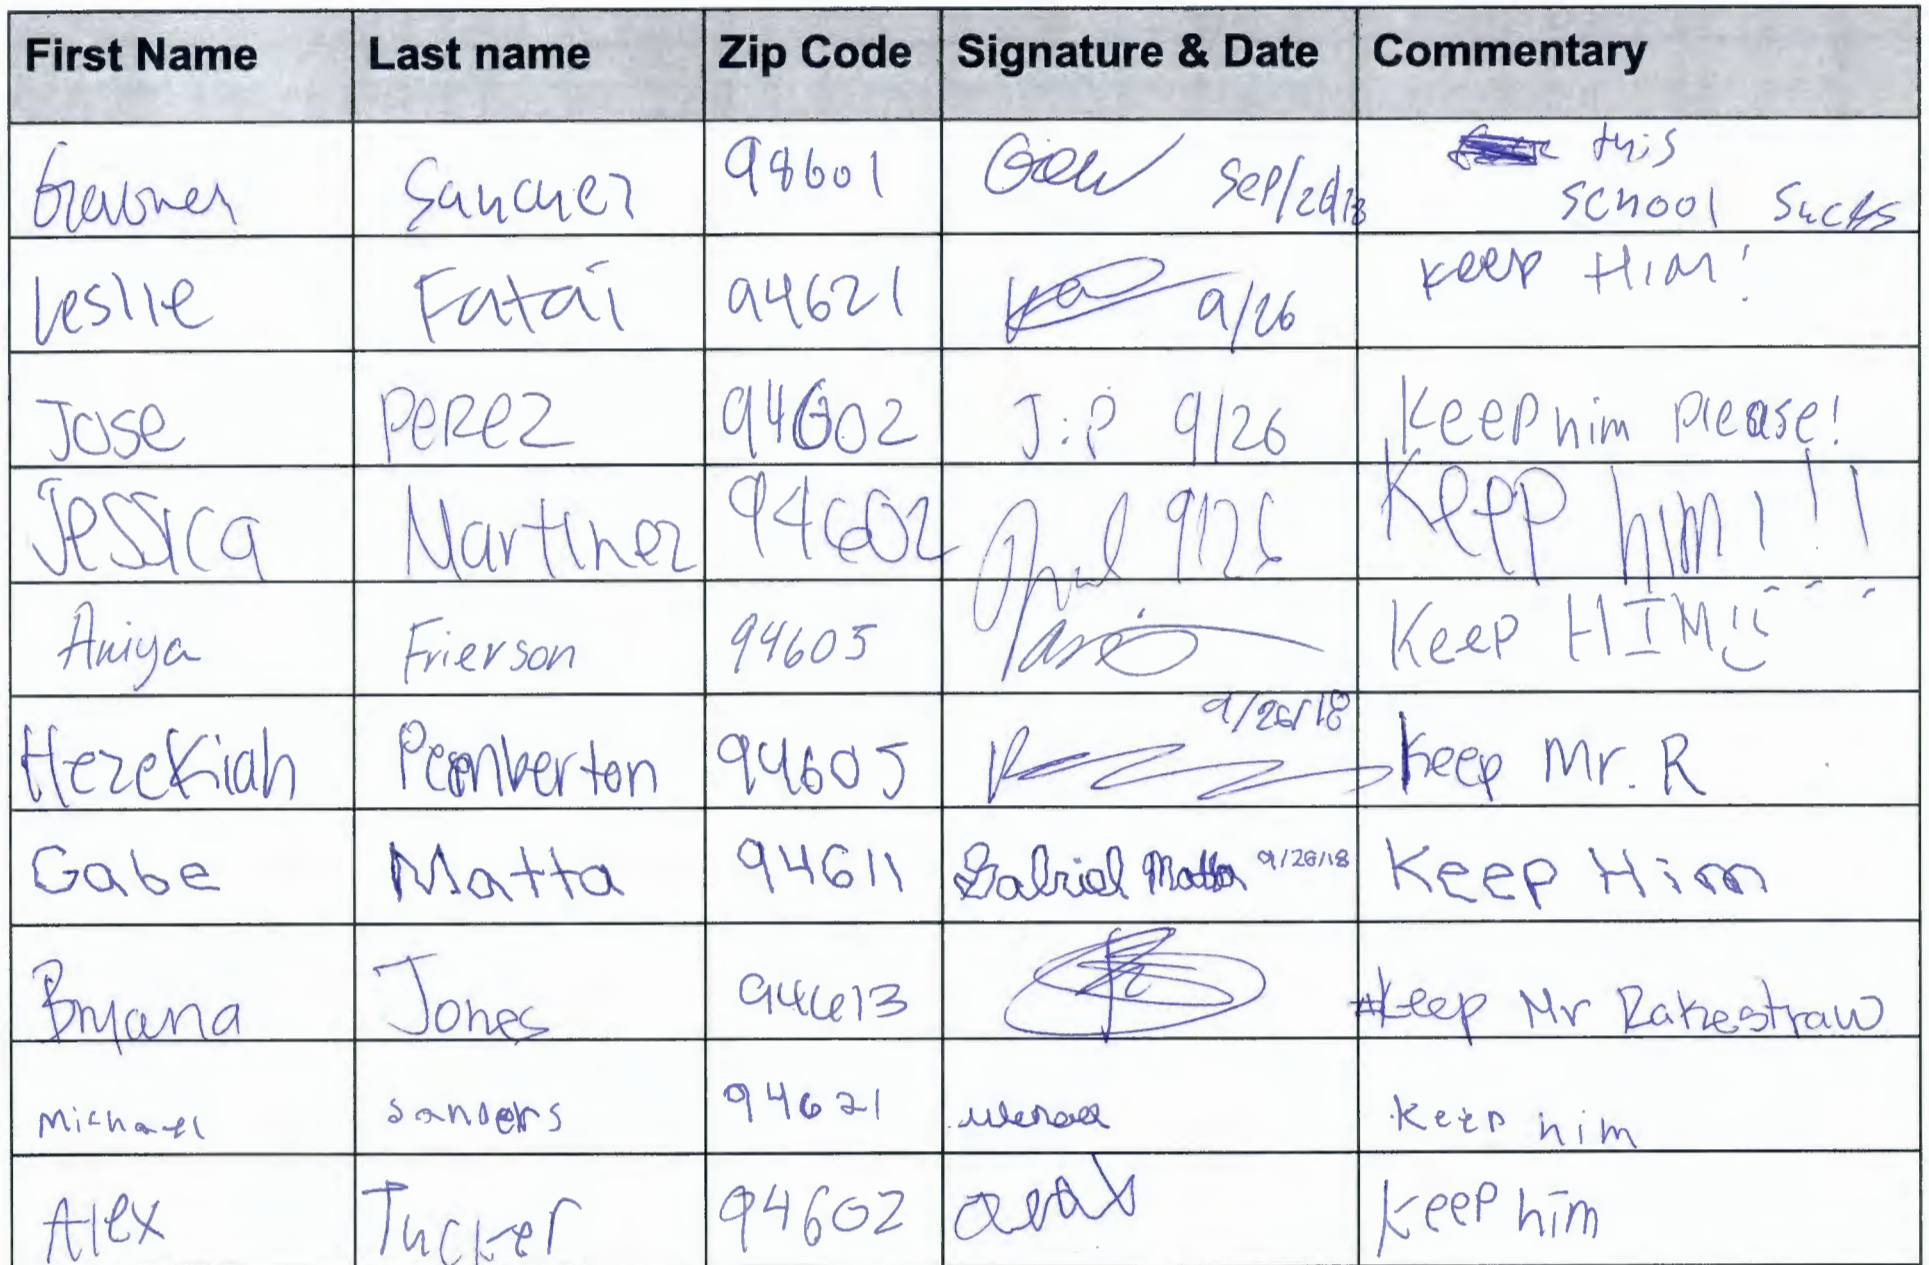 First Name Last name Zip Code Signature & Date Commentary
Sanchez 98601 Sep/26/18 this
school sucks
Leslie Fatai 94621 9/26 Keep Him!
Jose Perez 94602 J.P 9/26 Keep him please!
Jessica Martinez 94602 9/26 Keep him!!!
Aniya Frierson 94605 Keep HIM!
Hezekiah Pemberton 94605 9/26/18 Keep Mr. R
Gabe Matta 94611 Gabriel Matta 9/26/18 Keep Him
Bryana Jones 94613 #Keep Mr Rakestraw
Michael sanders 94621 Keep him
Alex Tucker 94602 Keep him